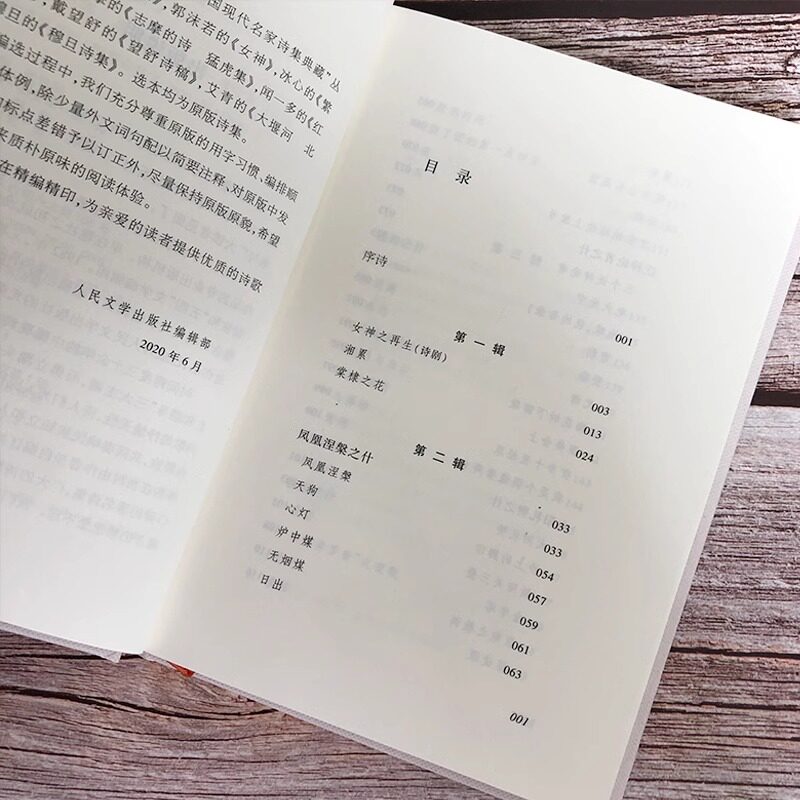 国现代名家诗集典藏”丛
的《志摩的诗 猛虎集》,闻一多的《红
》,郭沫若的《女神》,冰心的《繁
,戴望舒的《望舒诗稿》,艾青的《大堰河 北
穆旦的《穆旦诗集》。选本均为原版诗集。
编选过程中,我们充分尊重原版的用字习惯、编排顺
体例,除少量外文词句配以简要注释,对原版中发
标点差错予以订正外,尽量保持原版原貌,希望
来质朴原味的阅读体验。
在精编精印,为亲爱的读者提供优质的诗歌
人民文学出版社编辑部
2020年6月
目录
序诗 001
第一辑
女神之再生(诗剧) 003
湘累 013
棠棣之花 024
第二辑
凤凰涅槃之什 033
凤凰涅槃 033
天狗 054
心灯 057
炉中煤 059
无烟煤 061
日出 063
001